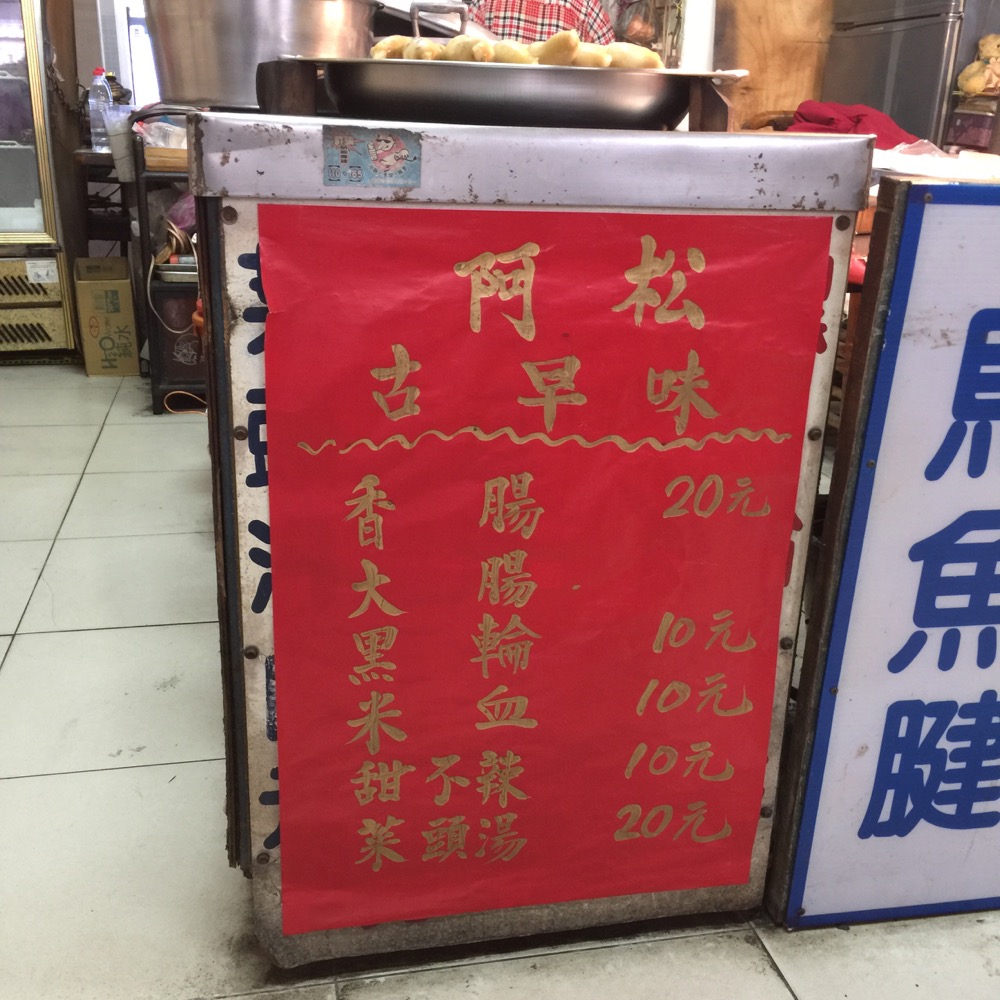 阿松
古早味
香腸 20元
大腸
黑輪 10元
米血 10元
甜不辣 10元
菜頭湯 20元
魚
腱
H2O
純水